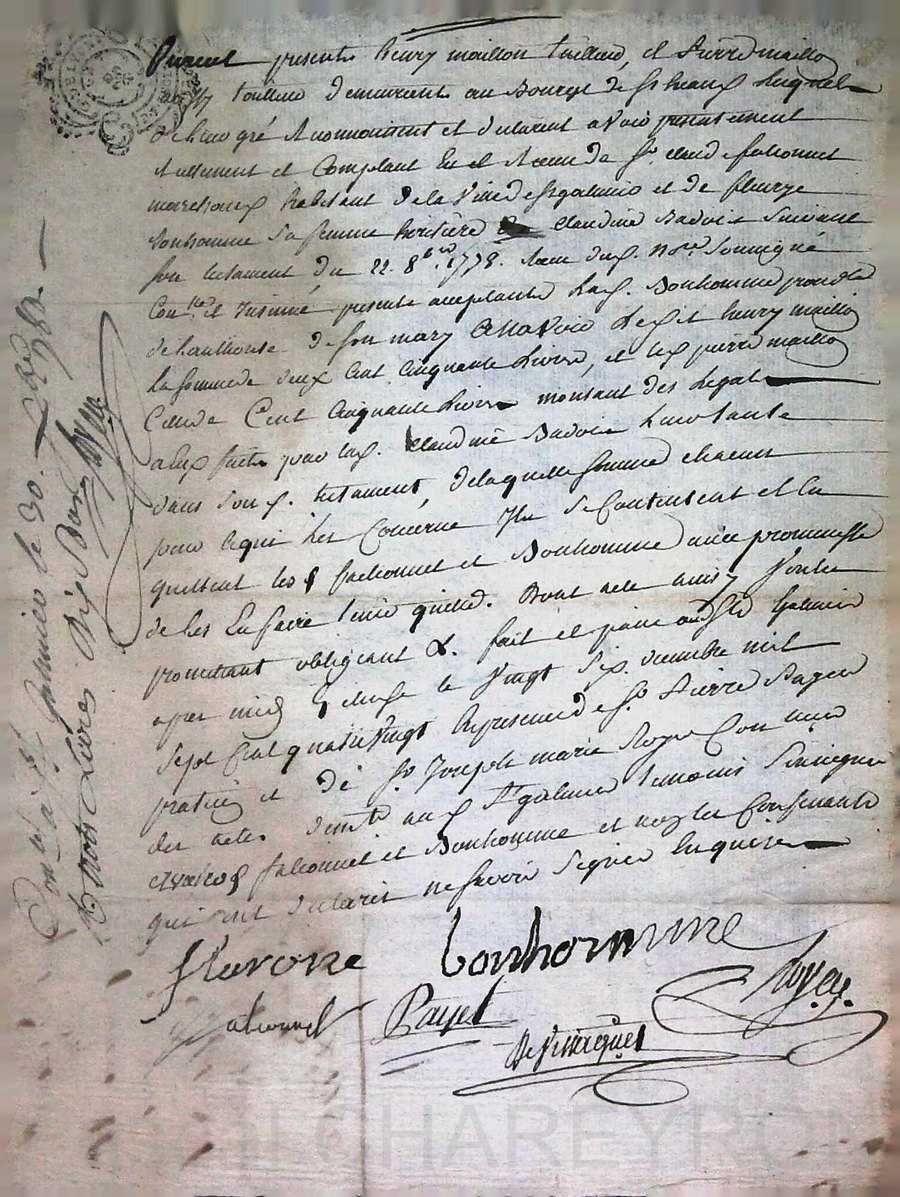 furent presents henry maillon tailleur, et Pierre maillon
tailleur demeurants au Bourg de St heand lesquels
de leur gré et ont declaré avoir presentement
reellement et comptant Eu et Receu de Sr claude falconnet
marchand habitant de la Ville de St galmier et de fleurye
bonhomme sa femme heritiere de claudine Badoit suivant
son testament du 22. 8bre 1778. Receu du d. Nore soussigné
Conlé et Insinué presente acceptante lad. Bonhomme procedte
de l'authorité de son mary a savoir led. henry maillon
la somme de deux Cent Cinquante livres, et led. pierre maillon
Celle de Cent Cinquante livres montant des Legats
a eux faits par lad. claudine Badoit
dans son d. testament, de laquelle somme chacun
pour ce qui les Concerne Ils se Contentent et en
quittent les d. falconnet et Bonhomme avec promesse
de les En faire tenir quittes. Dont acte
promettant obligeant &. fait et passé aud. St Galmier
apres midy le vingt six decembre mil
sept Cent quatre vingt En presence de Sr Pierre Payet
praticien et de Sr Joseph marie Royer Con
des actes aud. St galmier temoins soussignés
avec les d. falconnet et Bonhomme et non les Consentants
qui ont declaré ne savoir signer Enquis
fleurone bonhomme
falconnet Payet Royer.
DeVinerguet
Conlé a St Galmier le 30. Xbre 1780
R. trois Livres Dix sols
Royer
CHAREYRON